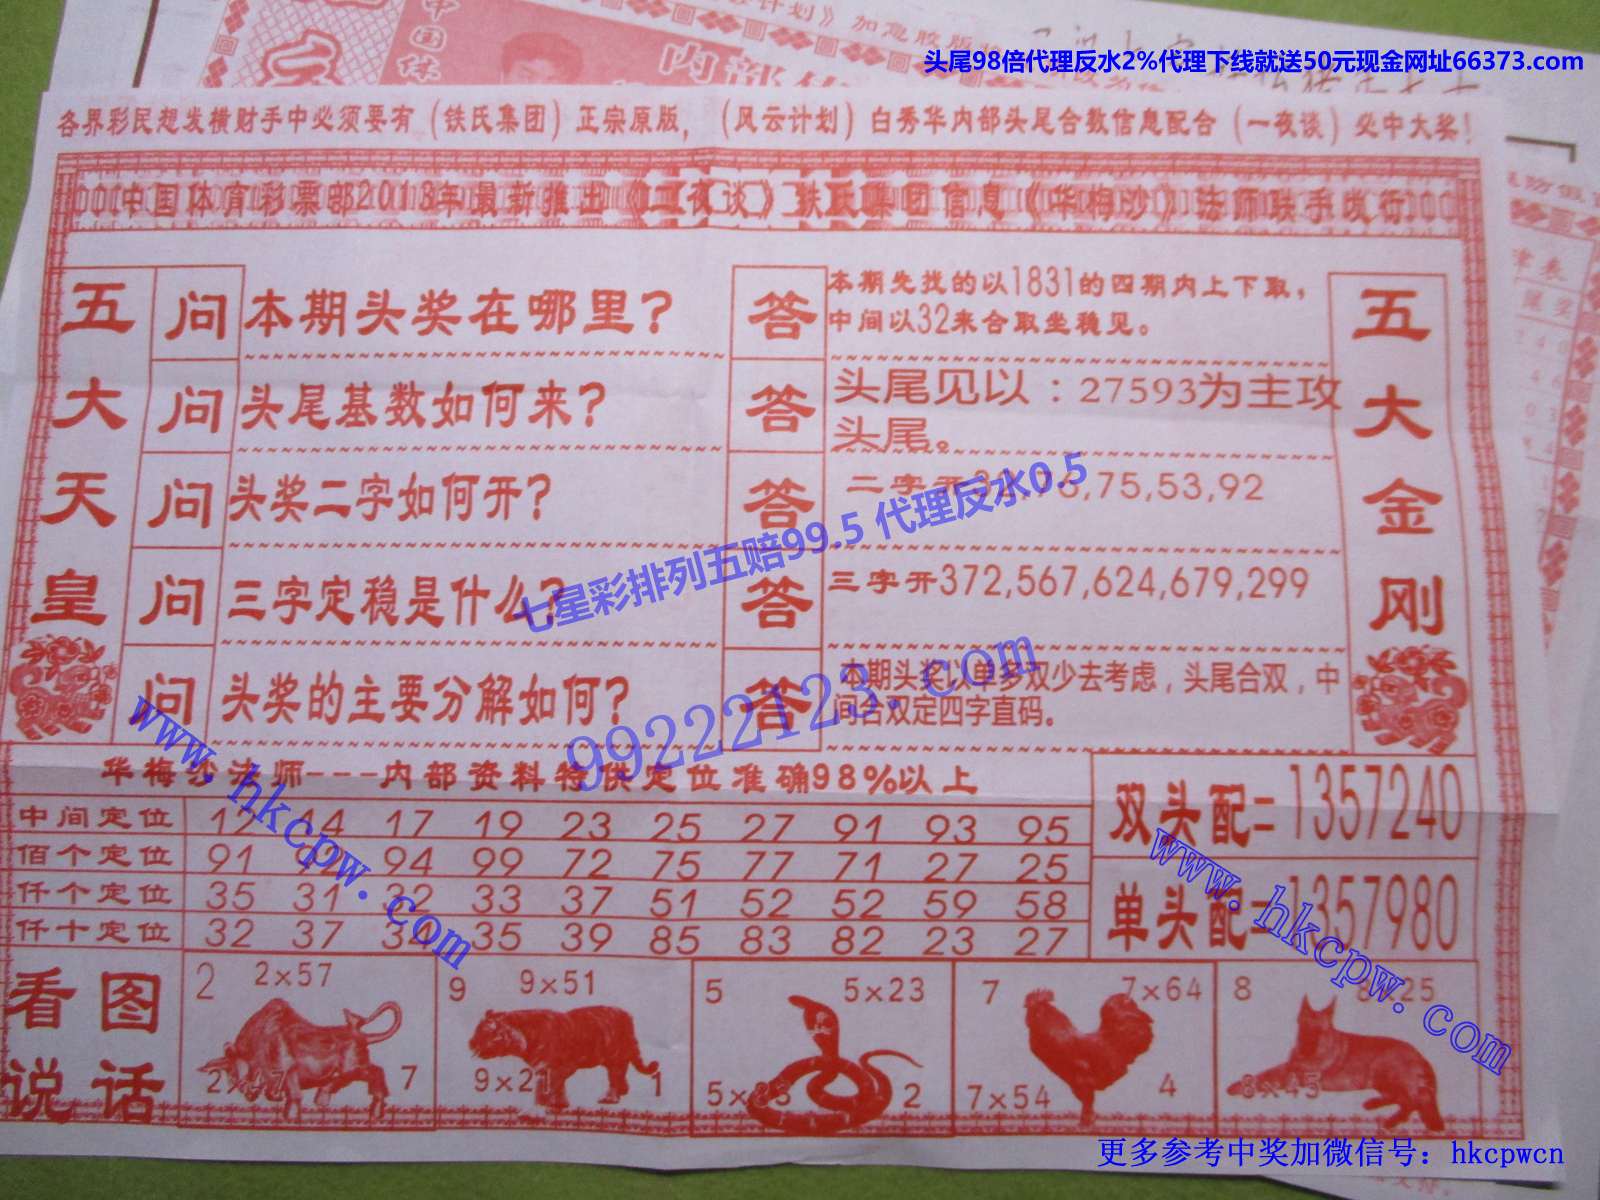 头尾98倍代理反水2%代理下线就送50元现金网址66373.com
中国体
内部
各界彩民想发横财手中必须要有（铁氏集团）正宗原版，（风云计划）白秀华内部头尾合数信息配合（一夜谈）必中大奖！
中国体育彩票部2013年最新推出《一夜谈》铁氏集团信息《华梅沙》法师联手改行
五大天皇
问 本期头奖在哪里？
答 本期先找的以1831的四期内上下取，
中间以32来合取坐稳见。
问 头尾基数如何来？
答 头尾见以：27593为主攻
头尾。
问 头奖二字如何开？
答 二字开32,76,75,53,92
问 三字定稳是什么？
答 三字开372,567,624,679,299
问 头奖的主要分解如何？
答 本期头奖以单多双少去考虑，头尾合双，中
间合双定四字直码。
五大金刚
七星彩排列五赔99.5 代理反水0.5
99222123.com
www.hkcpw.com
www.hkcpw.com
华梅沙法师---内部资料特供定位准确98%以上
中间定位 12 14 17 19 23 25 27 91 93 95
佰个定位 91 92 94 99 72 75 77 71 27 25
仟个定位 35 31 32 33 37 51 52 52 59 58
仟十定位 32 37 34 35 39 85 83 82 23 27
双头配=1357240
单头配=1357980
看图
说话
2 2×57
7
9 9×51
9×21 1
5 5×23
2
7 7×64
7×54 4
8
8×45
更多参考中奖加微信号：hkcpwcn